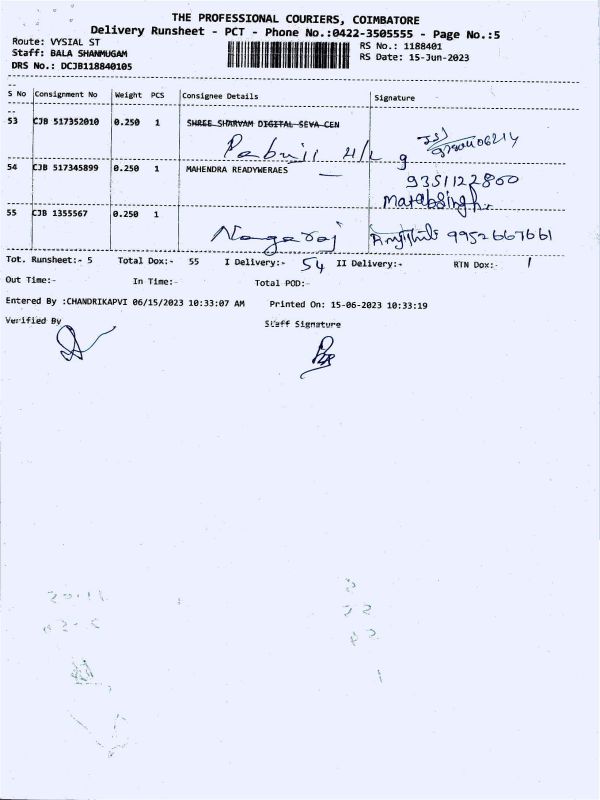 THE PROFESSIONAL COURIERS, COIMBATORE
Delivery Runsheet - PCT - Phone No.:0422-3505555 - Page No.:5
Route: VYSIAL ST
RS No.: 1188401
Staff: BALA SHANMUGAM
RS Date: 15-Jun-2023
DRS No.: DCJB118840105
S No Consignment No Weight PCS Consignee Details Signature
53 CJB 517352010 0.250 1 SHREE SHARVAM DIGITAL SEVA CEN
54 CJB 517345899 0.250 1 MAHENDRA READYWERAES
9351122800
55 CJB 1355567 0.250 1
Nagaraj 9952667661
Tot. Runsheet:- 5 Total Dox:- 55 I Delivery:- 54 II Delivery:- RTN Dox:- 1
Out Time:- In Time:- Total POD:-
Entered By :CHANDRIKAPVI 06/15/2023 10:33:07 AM Printed On: 15-06-2023 10:33:19
Verified By Staff Signature